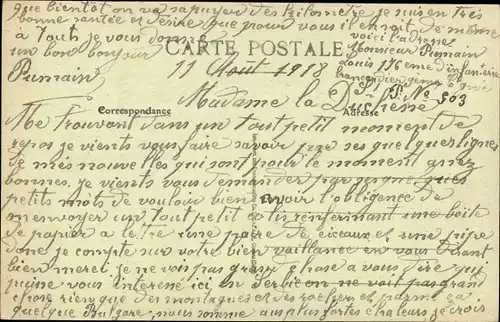 que bientôt on va se payer des kilomètre je suis en très
bonne santée et désire que pour vous il en soit de même
a Tout je vous donne
un bon bonjour
Pumain
voici l'adresse
Monsieur Pumain
Louis 176eme d'infanterie
S.P. No 503
CARTE POSTALE
11 Août 1918
Madame la Duchesne
Correspondance
Adresse
Me trouvant dans un tout petit moment de
repos je vients vous faire savoir par ses quelques lignes
de mes nouvelles qui sont pour le moment assez
bonnes. je vients vous demander par ses quelques
petits mots de vouloir bien avoir l'obligence de
m'envoyer un tout petit colis renfermant une boite
de papier a lettre une paire de ciseaux et une pipe
donc je compte sur votre bien vaillance en vous disant
bien merci je ne vois pas grand chose a vous dire qui
puisse vous interessé ici en on ne voit pas grand
chose rien que des montagnes et des rochers et parmé ça
quelque Bulgare; nous somme au plus fortes chaleurs je crois